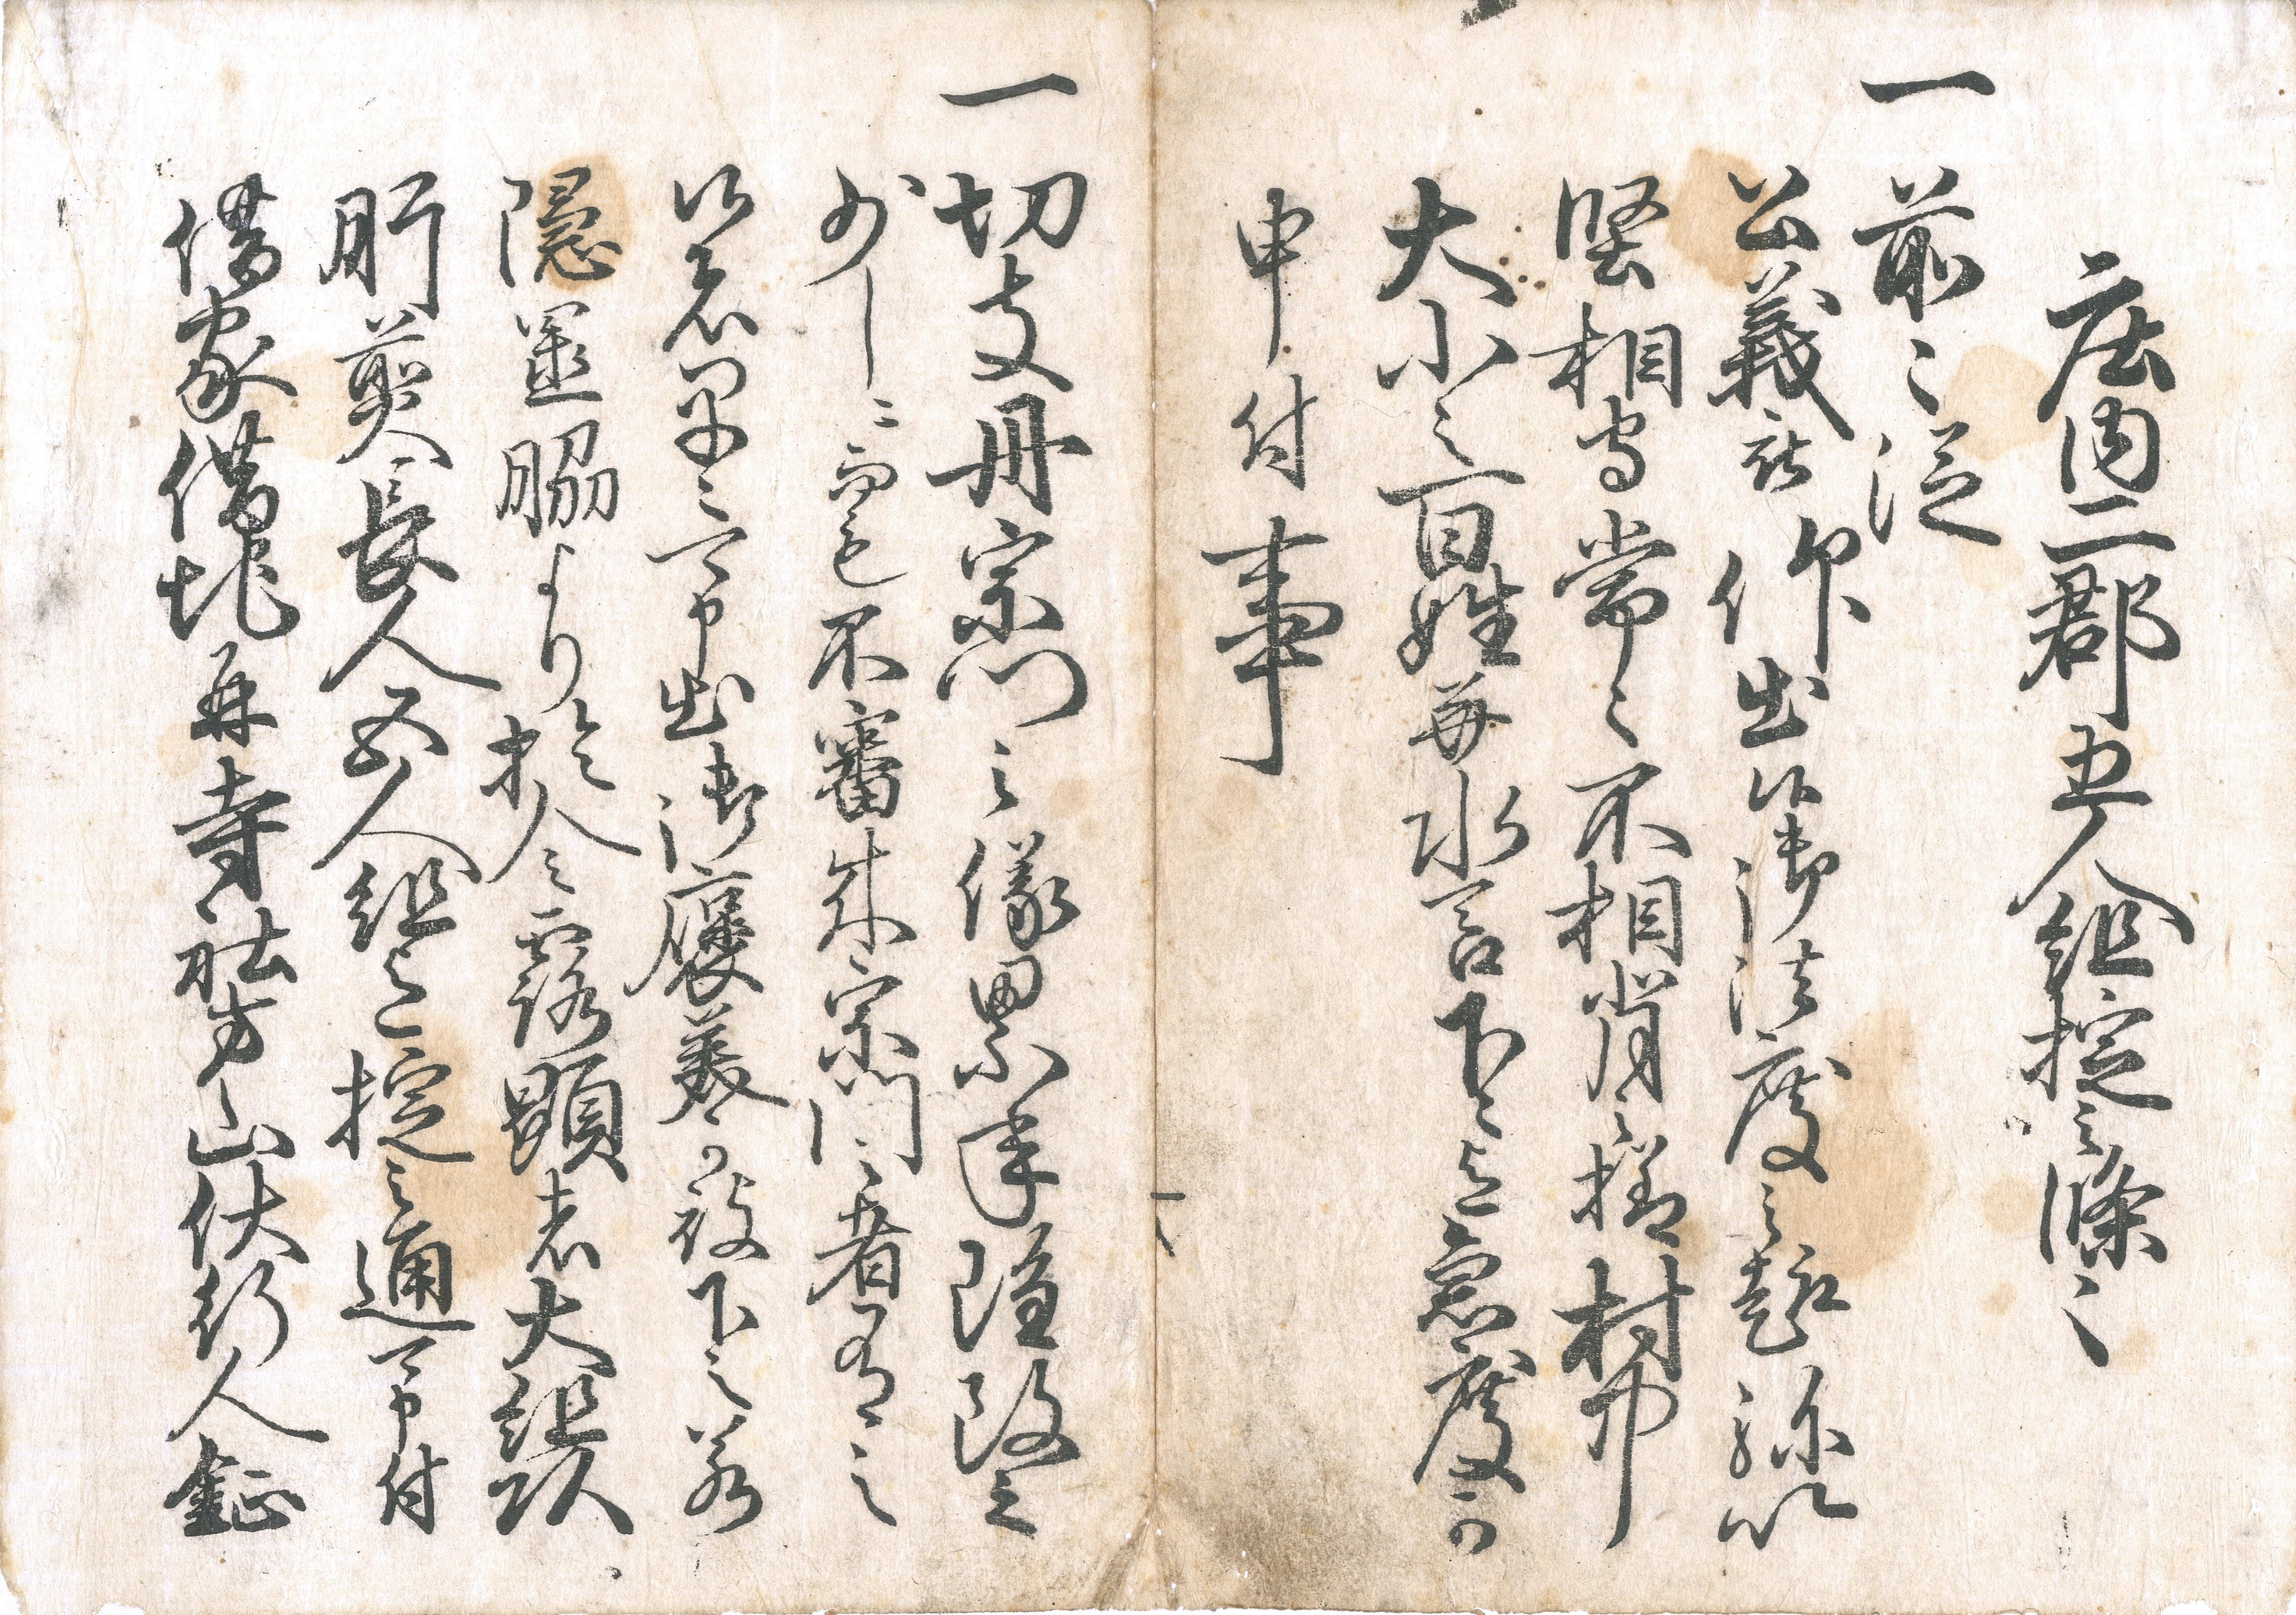 庄内二郡五人組掟之條々
一前々従
公義被 仰出候御法度之趣弥以
堅相守常々不相背之様村中
大小之百姓并水呑下々迄急度可
申付事
一切支丹宗門之儀累年雖改之
少しニ而も不審成宗門之者有之
候者早々可申出御褒美可被下之若
隠置脇より於令露顕者大組頭
肝煎長人五人組迄掟之通可申付
借家借地并寺社方山伏行人鉦